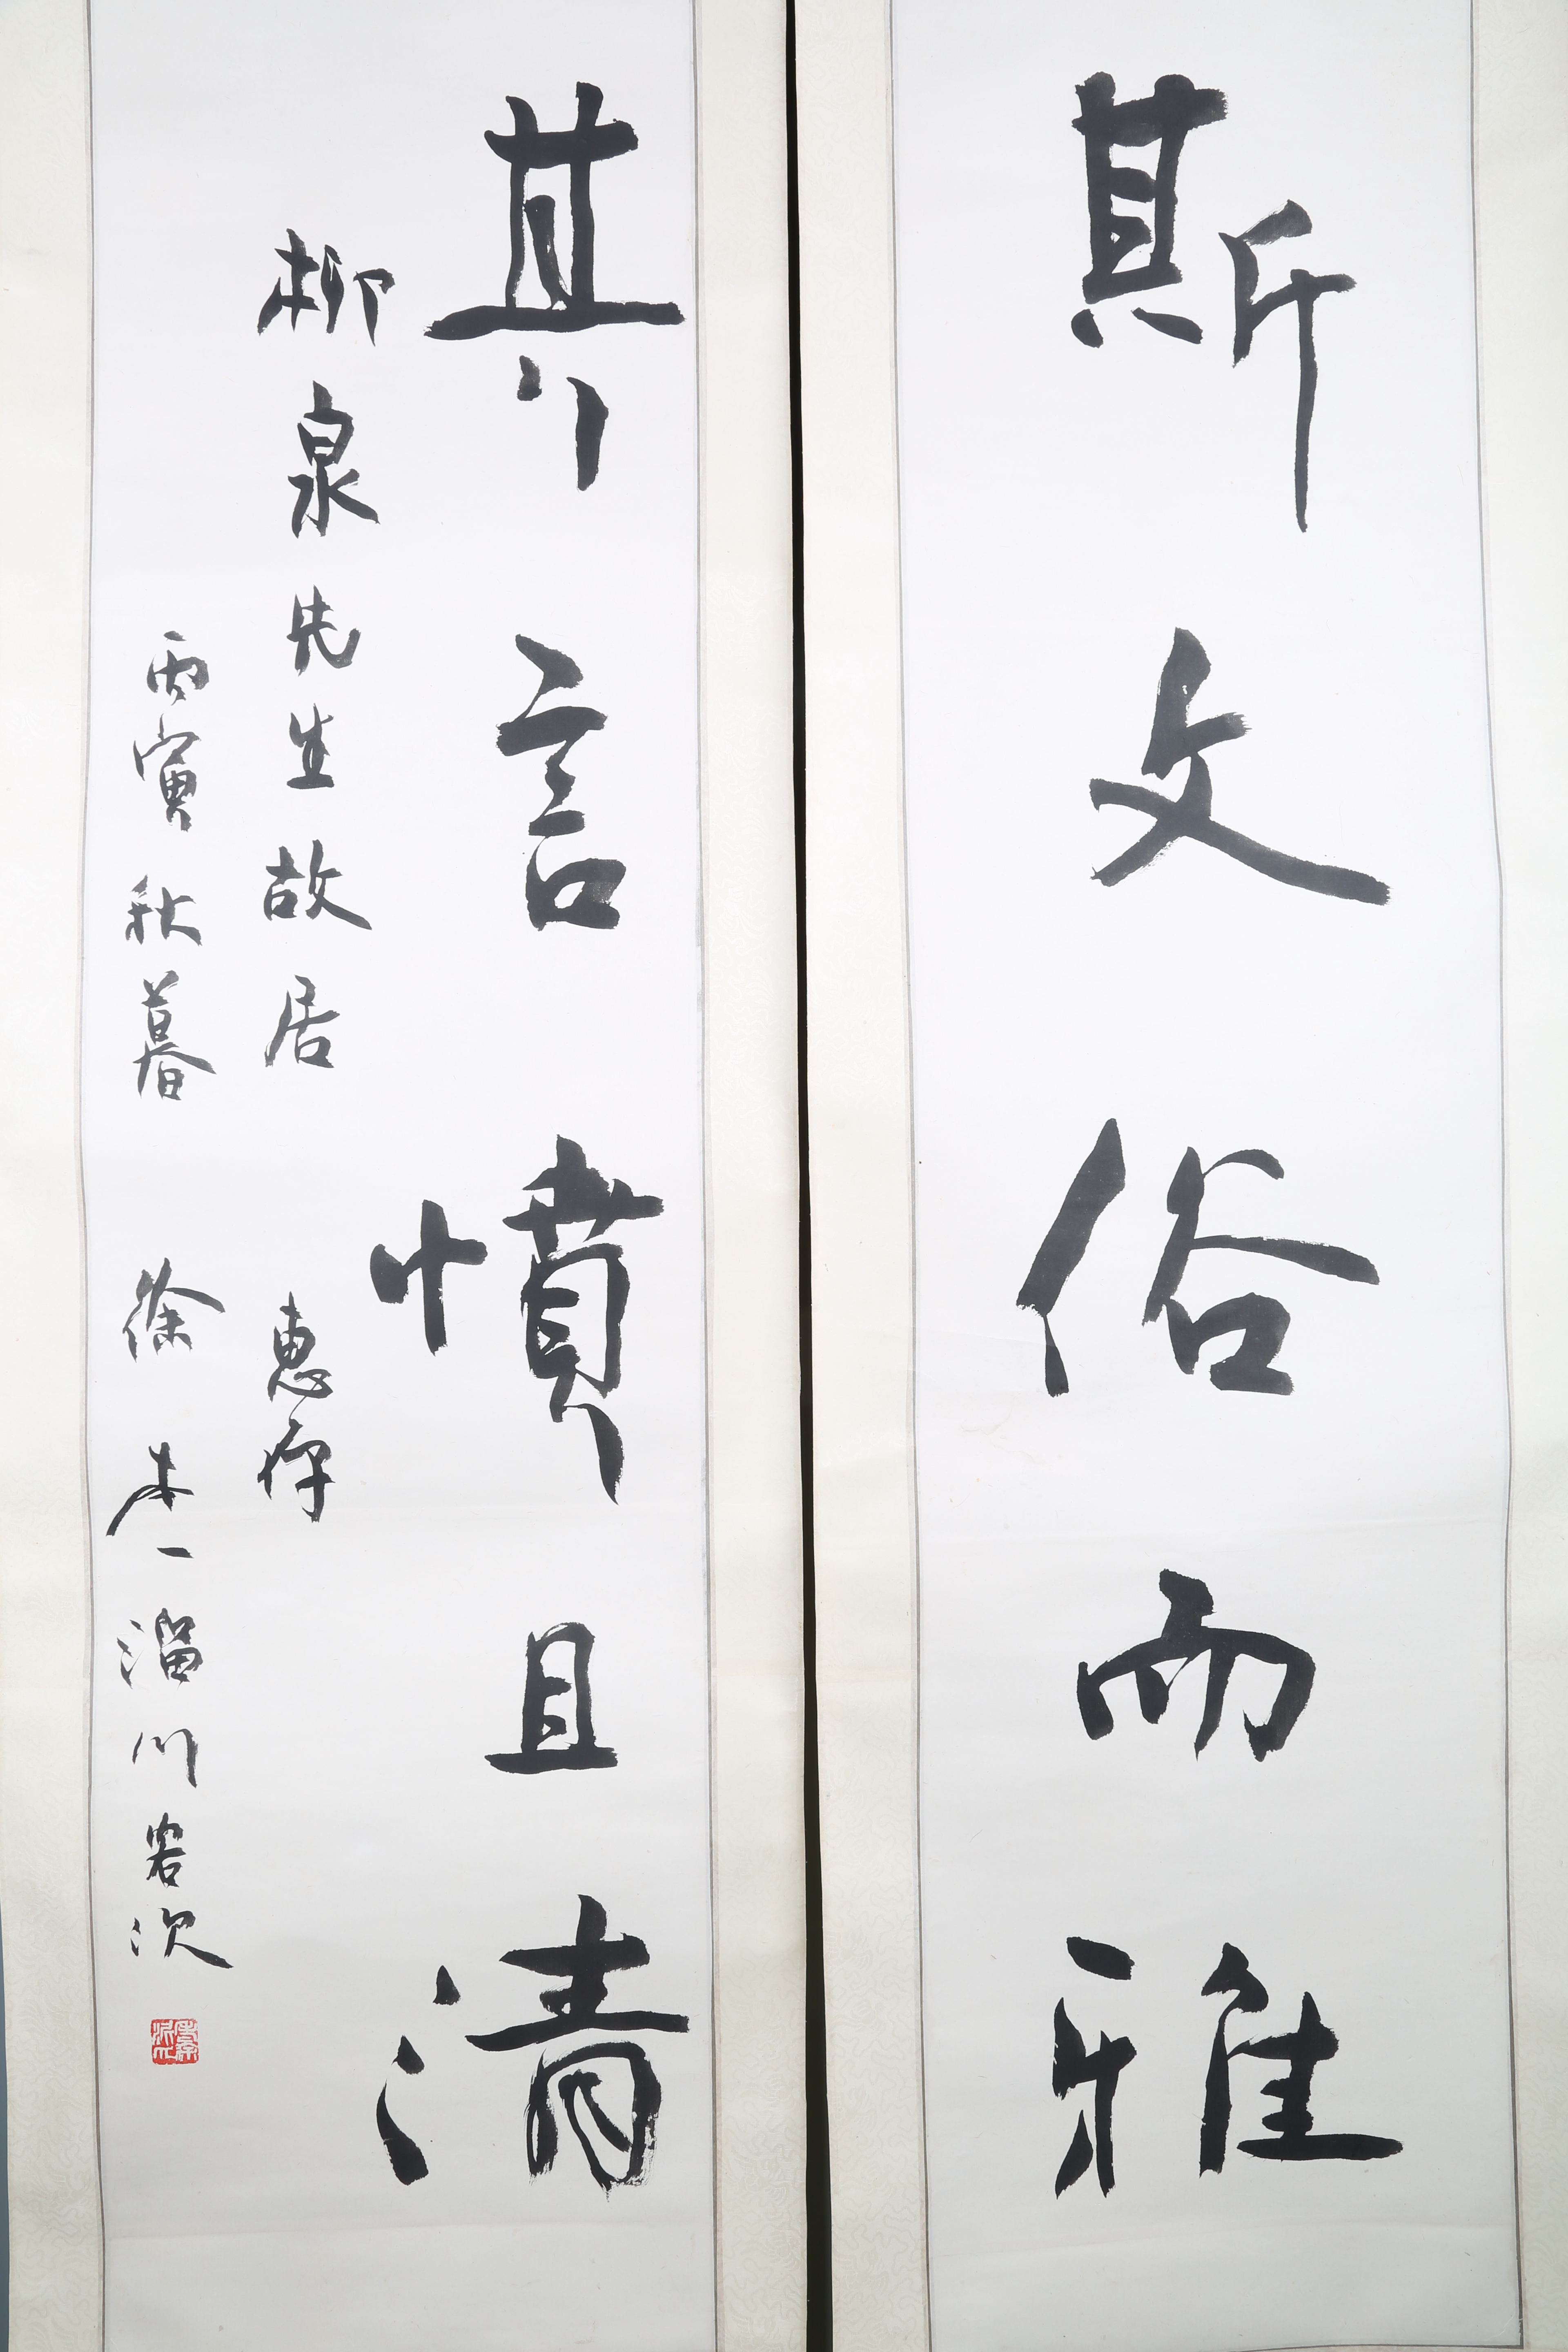 斯文俗而雅
其言憤且清
柳泉先生故居 惠存
丙寅秋暮 徐本一 淄川客次